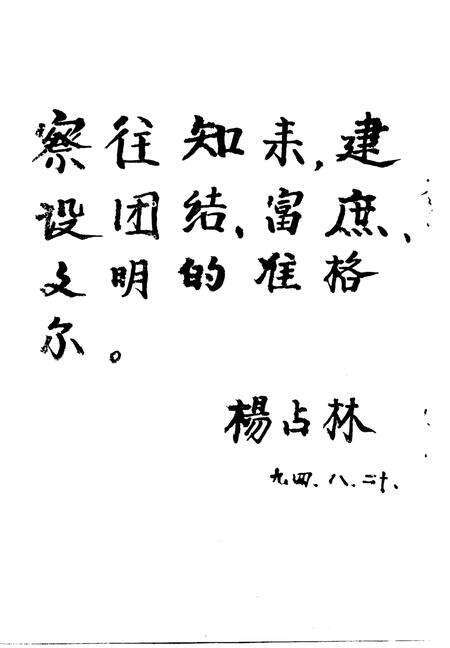 察往知来,建
设团结、富庶、
文明的准格
尔。
楊占林
九四、八、二十、